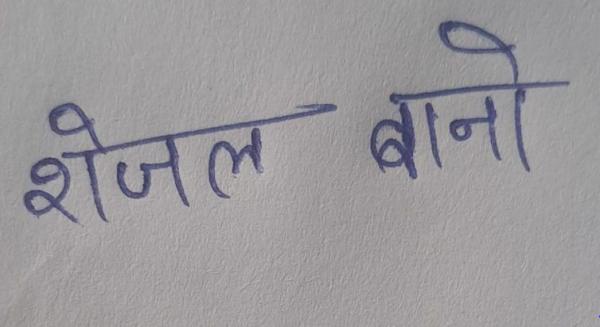 शेजल बानो